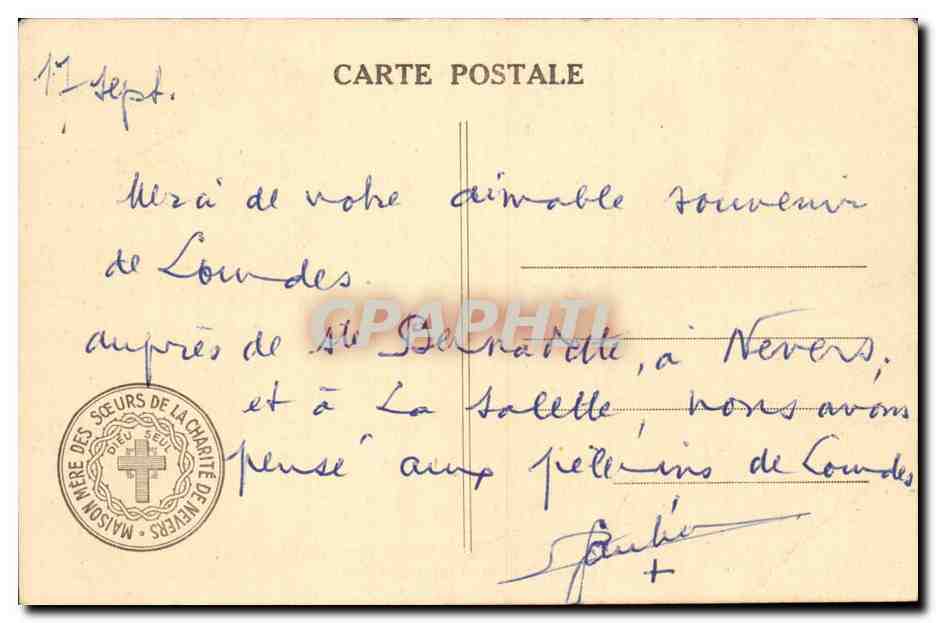 17 sept.
CARTE POSTALE
Merci de votre aimable souvenir
de Lourdes.
auprès de Ste Bernadette, à Nevers,
et à La Salette, nous avons
pensé aux pèlerins de Lourdes
CPAPHIL
MAISON MÈRE DES SŒURS DE LA CHARITÉ DE NEVERS
DIEU SEUL